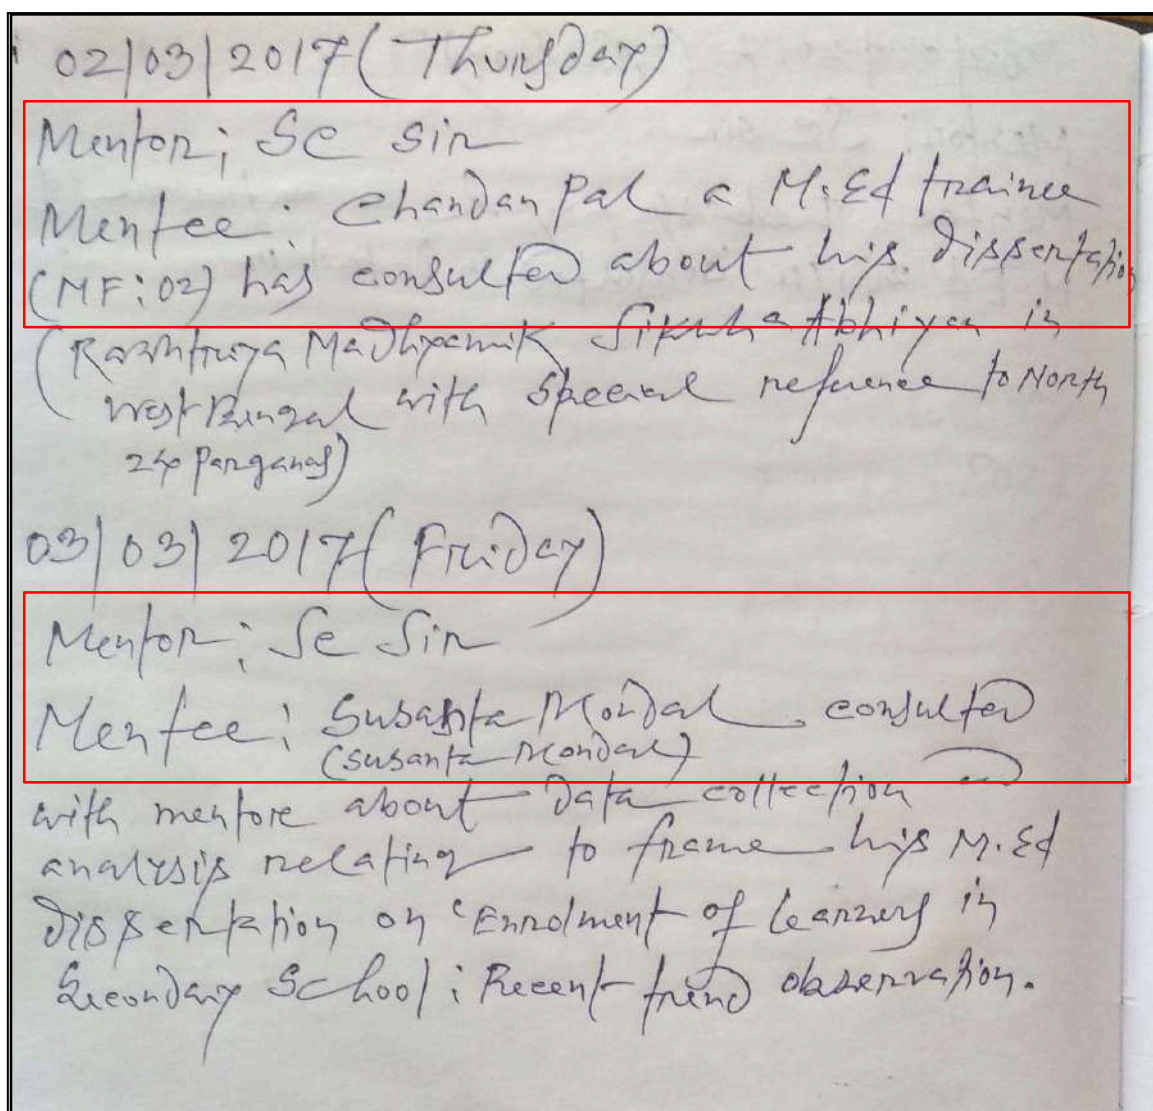 02/03/2017 (Thursday)
Mentor; Sc Sir
Mentee: Chandan Pal a M.Ed trainee
(MF:02) has consulted about his dissertation
(Rashtriya Madhyamik Siksha Abhiyan in
West Bengal with special reference to North
24 Parganas)
03/03/2017 (Friday)
Mentor; Sc Sir
Mentee: Susanta Mondal consulted
(Susanta Mondal)
with mentore about data collection
analysis relating to frame his M.Ed
dissertation on 'Enrolment of learners in
Secondary School: Recent trend observation.